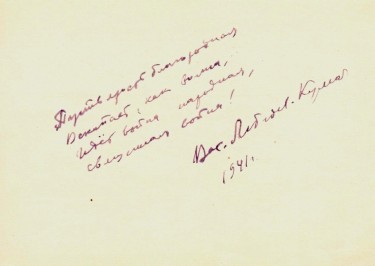 Пусть ярость благородная
Вскипает, как волна,
Идёт война народная,
священная война!
Вас. Лебедев-Кумач
1941 г.